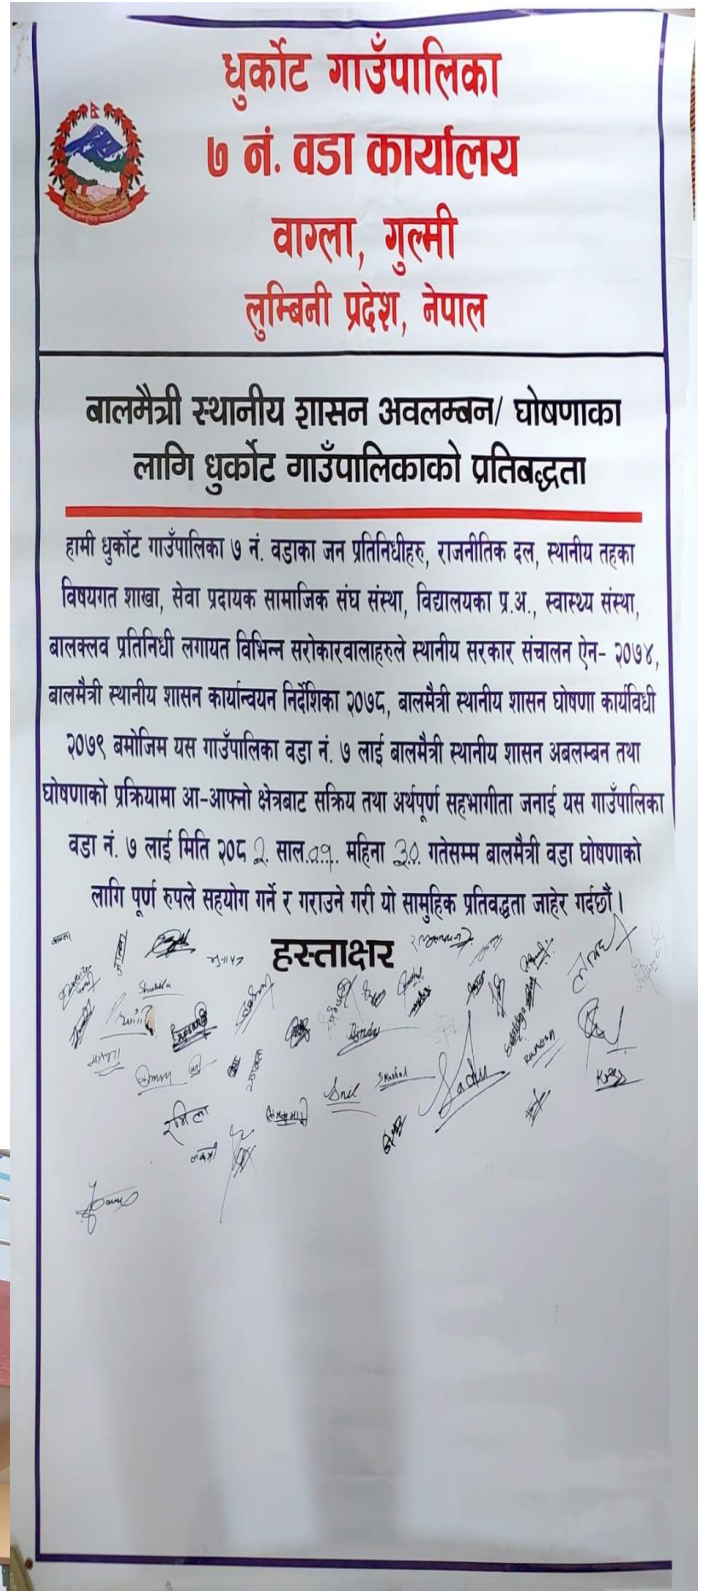 धुर्कोट गाउँपालिका
७ नं. वडा कार्यालय
वाग्ला, गुल्मी
लुम्बिनी प्रदेश, नेपाल
बालमैत्री स्थानीय शासन अवलम्बन/ घोषणाका
लागि धुर्कोट गाउँपालिकाको प्रतिबद्धता
हामी धुर्कोट गाउँपालिका ७ नं. वडाका जन प्रतिनिधीहरु, राजनीतिक दल, स्थानीय तहका
विषयगत शाखा, सेवा प्रदायक सामाजिक संघ संस्था, विद्यालयका प्र.अ., स्वास्थ्य संस्था,
बालक्लव प्रतिनिधी लगायत विभिन्न सरोकारवालाहरुले स्थानीय सरकार संचालन ऐन- २०७४,
बालमैत्री स्थानीय शासन कार्यान्वयन निर्देशिका २०७८, बालमैत्री स्थानीय शासन घोषणा कार्यविधी
२०७९ बमोजिम यस गाउँपालिका वडा नं. ७ लाई बालमैत्री स्थानीय शासन अबलम्बन तथा
घोषणाको प्रक्रियामा आ-आफ्नो क्षेत्रबाट सक्रिय तथा अर्थपूर्ण सहभागीता जनाई यस गाउँपालिका
वडा नं. ७ लाई मिति २०८२ साल ०९ महिना ३० गतेसम्म बालमैत्री वडा घोषणाको
लागि पूर्ण रुपले सहयोग गर्ने र गराउने गरी यो सामुहिक प्रतिवद्धता जाहेर गर्दछौं ।
हस्ताक्षर
Anil
रमिला